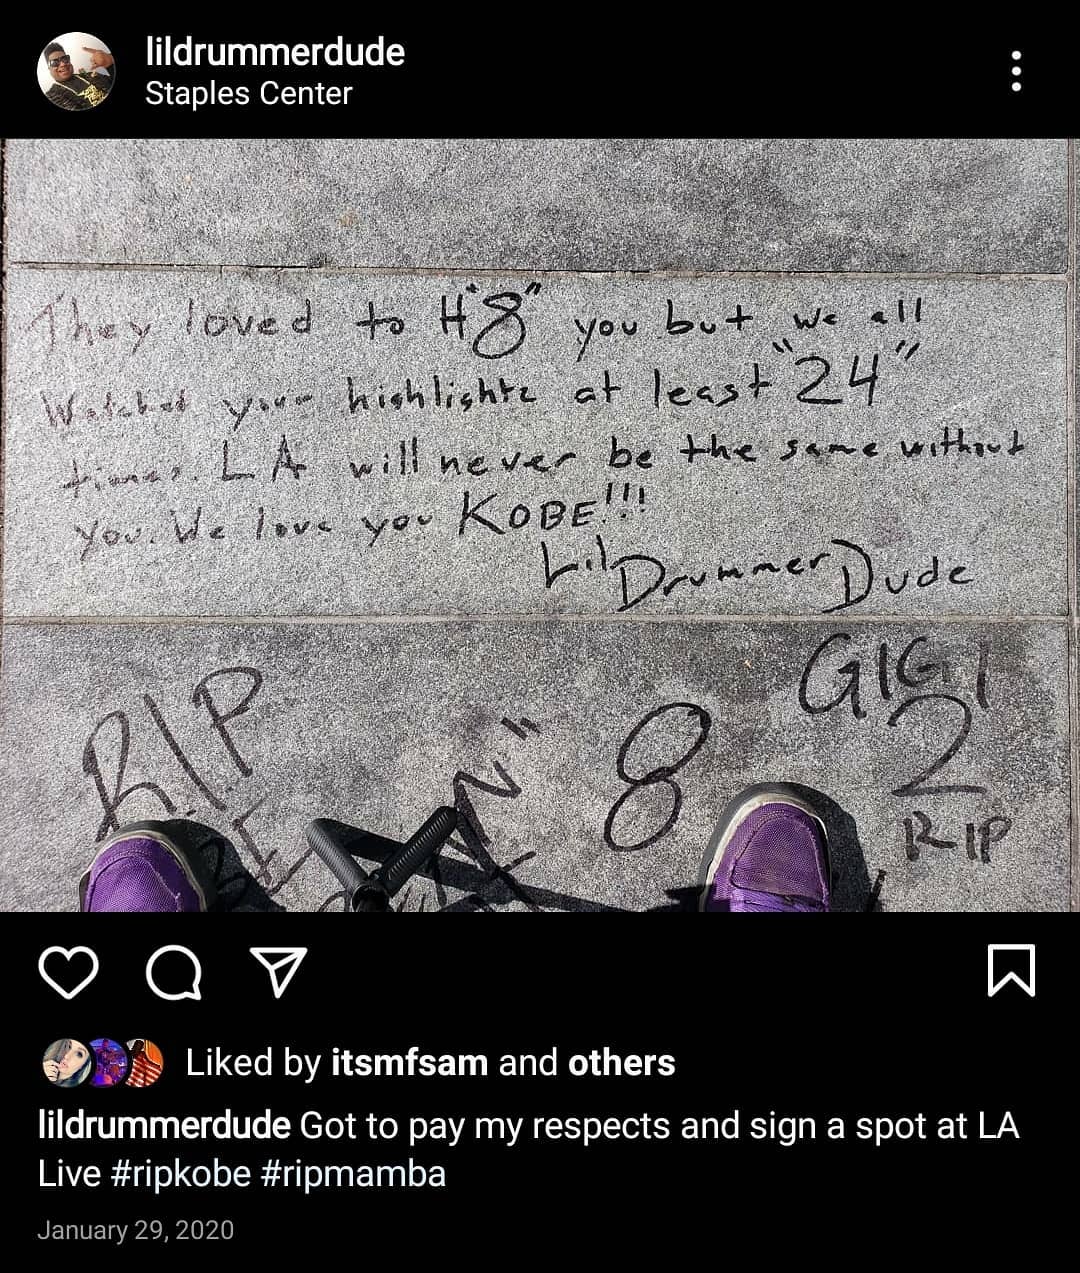 lildrummerdude
Staples Center
They loved to H"8" you but we all
Watched your highlights at least "24"
times. LA will never be the same without
You. We love you KOBE!!!
Lil Drummer Dude
RIP
8
GIGI
2
RIP
Liked by itsmfsam and others
lildrummerdude Got to pay my respects and sign a spot at LA
Live #ripkobe #ripmamba
January 29, 2020